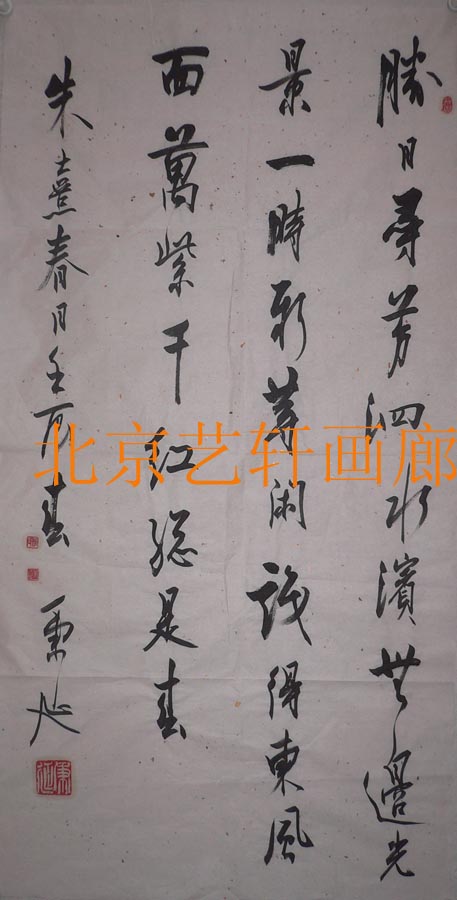 勝日尋芳泗水濱無邊光
景一時新等閑識得東風
面萬紫千紅總是春
朱熹春日壬辰春
北京艺轩画廊